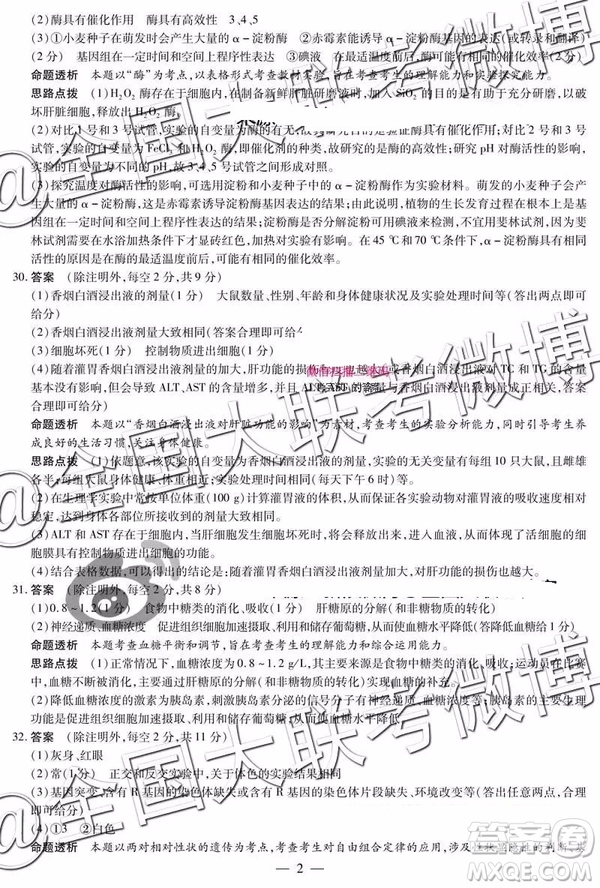 (2)酶具有催化作用　酶具有高效性　3、4、5
(3)①小麦种子在萌发时会产生大量的 α-淀粉酶　②赤霉素能诱导 α-淀粉酶的合成
(2分)　基因组在一定时间和空间上程序性表达　③碘液　在最适温度前后酶具有相同的催化效率(2分)
命题透析　本题以“酶”为考点,以表格形式考查教材实验,旨在考查考生的理解能力和实验探究能力。
思路点拨　(1)H₂O₂ 酶存在于细胞内,在制备新鲜肝脏研磨液时,加入 SiO₂ 的目的是有助于充分研磨,以破
坏肝脏细胞,释放出 H₂O₂ 酶。
(2)对比 1 号和 3 号试管,实验的自变量为酶的有无,故研究目的是验证酶具有催化作用。对比 2 号和 3 号
试管,实验的自变量为 FeCl₃ 和 H₂O₂ 酶,即催化剂的种类,故研究的目的是酶具有高效性;研究 pH 对酶活性
的影响,实验的自变量为 pH 的不同,故 3、4、5 试管之间形成对照。
(3)探究温度对酶活性的影响,可选用淀粉和小麦种子中的 α-淀粉酶作为实验材料。萌发的小麦种子会产
生大量的 α-淀粉酶,这是赤霉素诱导基因程序性表达的结果,当然,植物的生长发育过程在根本上是基
因组在一定时间和空间上程序性表达的结果;淀粉酶是否分解淀粉可用碘液来检测,不能用斐林试剂,因斐
林试剂需要在水浴加热条件下使用,会影响实验结果。在 45 ℃和 70 ℃下,α-淀粉酶具有大致相同
活性的原因是在酶的最适温度前后,酶可能有相同的催化效率。
30. 答案　(除注明外,每空 2 分,共 9 分)
(1)香烟白酒浸出液的剂量(1 分)　大鼠数量、性别、年龄和身体健康状况及实验处理时间等(答出两点即可)
(2)香烟白酒浸出液剂量大致相同(答案合理即可)
(3)细胞坏死(1 分)　控制物质进出细胞(1 分)
(4)随着灌胃香烟浸出液剂量的加大,肝功能的损伤 越 香烟白酒浸出液对 TC 和 TG 的含量
基本没有影响,但会导致 ALT、AST 的含量增多,并 的含量与香烟浸出液剂量成正相关,答案
合理即可给分)
命题透析　本题以“香烟白酒浸出液对肝脏功能的影响”为情境,考查考生的实验分析能力,同时引导考生养
成健康的生活习惯,关注自身健康。
思路点拨　(1)依题意,该实验的自变量为香烟白酒浸出液的剂量,实验的无关变量有每组 10 只大鼠,且雌雄
各半,每只大鼠的年龄和身体健康状况相同,还有实验处理时间(每天下午 6 时)等。
(2)在生理学实验中常按单位体重(g)计算灌胃液的剂量,从而保证各实验动物灌胃后体内的灌胃液浓度
稳定,达到身体各部位所接受到的剂量大致相同。
(3)ALT 和 AST 存在于细胞内,当肝细胞发生细胞坏死时,将会释放出来,进入血液,从而体现了活细胞的细
胞膜具有控制物质进出细胞的功能。
(4)结合表格数据,可以得出的结论是:随着灌胃香烟浸出液剂量的加大,对肝功能的损伤也越大。
31. 答案　(除注明外,每空 2 分,共 8 分)
(1)0.8~1.2(1 分)　食物中糖类的消化、吸收(1 分)　肝糖原的分解(和非糖物质的转化)
(2)神经递质、血糖浓度　促进组织细胞摄取、利用和储存葡萄糖,从而使血糖水平降低
命题透析　本题考查血糖平衡和调节,旨在考查考生的理解能力和综合运用能力。
思路点拨　(1)正常情况下,人的血糖浓度为 0.8~1.2 g/L,其主要来源是食物中糖类的消化、吸收,运动后,
(2)降低血糖浓度的激素为胰岛素,刺激胰岛素分泌的信号分子有神经递质、血糖浓度等;胰岛素的功能是
促进组织细胞摄取、利用和储存葡萄糖,从而使血糖水平降低。
32. 答案　(除注明外,每空 2 分,共 11 分)
(1)灰身、红眼
(2)常(1 分)　正交和反交实验中,关于体色的实验结果相同
(3)基因突变,含有 R 基因的染色体缺失或含有 R 基因的染色体片段缺失、环境改变等(答出两点即可给分)
(4)①3　②白色
命题透析　本题以两对相对性状的遗传为考点,考查考生对自由组合定律的应用,涉及性状显隐性的判断、基
— 2 —
@全国大联考微博
答案圈
MXQE.COM